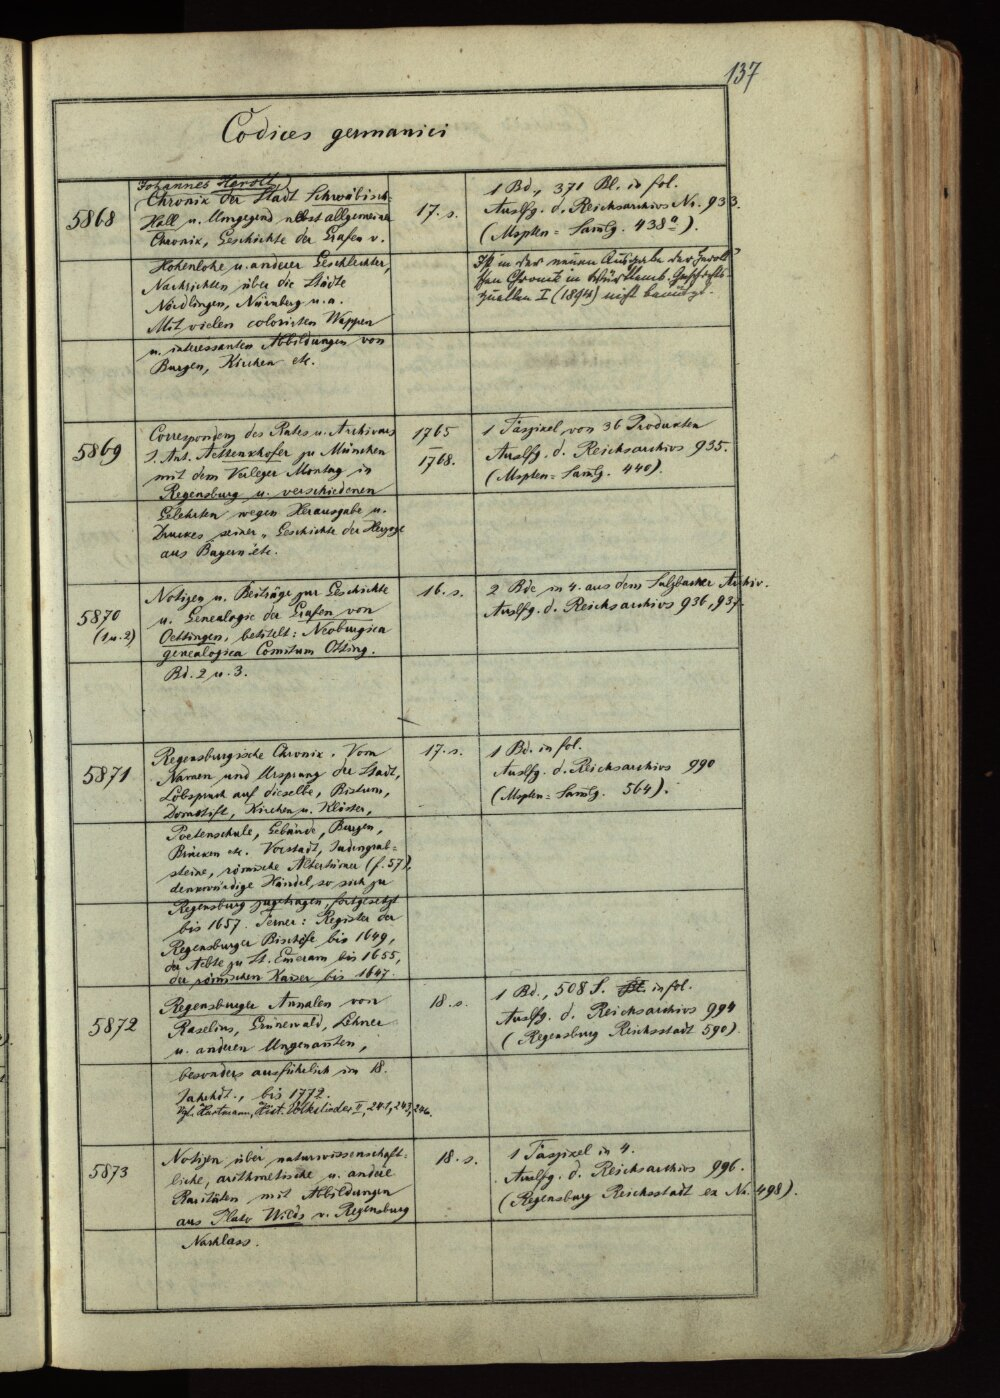 137
Codices germanici
5868
Johannes Herolt,
Chronik der Stadt Schwäbisch-
Hall u. Umgegend nebst allgemeiner
Chronik, Geschichte der Grafen v.
Hohenlohe u. anderer Geschlechter,
Nachrichten über die Städte
Nördlingen, Nürnberg u. a.
Mit vielen colorirten Wappen
u. interessanten Abbildungen von
Burgen, Kirchen etc.
17. s.
1 Bd., 371 Bl. in fol.
Auslfg. d. Reichsarchivs No. 933.
(Mspten-Samlg. 438a).
Ist in der neuen Ausgabe der Herolt'
schen Chronik in Württemb. Geschichts
quellen I (1894) nicht benützt.
5869
Correspondenz des Rates u. Archivars
J. Ant. Aettenkhofer zu München
mit dem Verleger Montag in
Regensburg u. verschiedenen
Gelehrten wegen Herausgabe u.
Druckes seiner „Geschichte der Herzoge
aus Bayern" etc.
1765
–
1768.
1 Faszikel von 36 Produkten
Auslfg. d. Reichsarchivs 935.
(Mspten-Samlg. 440).
5870
(1 u. 2)
Notizen u. Beiträge zur Geschichte
u. Genealogie der Grafen von
Oettingen, betitelt: Neoburgica
genealogica Comitum Otting.
Bd. 2 u. 3.
16. s.
2 Bde in 4. aus dem Sulzbacher Archiv.
Auslfg. d. Reichsarchivs 936, 937.
5871
Regensburgische Chronik. Vom
Namen und Ursprung der Stadt,
Lobspruch auf dieselbe, Bistum,
Domstift, Kirchen u. Klöster,
Poetenschule, Gebäude, Burgen,
Brücken etc. Vorstadt, Judengrab-
steine, römische Altertümer (f. 57),
denkwürdige Händel, so sich zu
Regensburg zugetragen, fortgesetzt
bis 1657. Ferner: Register der
Regensburger Bischöfe bis 1649,
der Aebte zu St. Emeram bis 1655,
der römischen Kaiser bis 1647.
17. s.
1 Bd. in fol.
Auslfg. d. Reichsarchivs 990
(Mspten-Samlg. 564).
5872
Regensburger Annalen von
Raselius, Grünewald, Lehner
u. anderen Ungenannten,
besonders ausführlich im 18.
Jahrhdt., bis 1772.
Vgl. Hartmann, Hist. Volkslieder II, 241, 243, 246.
18. s.
1 Bd., 508 S. in fol.
Auslfg. d. Reichsarchivs 994
(Regensburg Reichsstadt 590).
5873
Notizen über naturwissenschaft-
liche, arithmetische u. andere
Raritäten mit Abbildungen
aus Plato Wilds v. Regensburg
Nachlass.
18. s.
1 Faszikel in 4.
Auslfg. d. Reichsarchivs 996.
(Regensburg Reichsstadt ex No. 498).